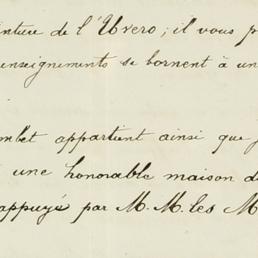 de l'Uvero; il vous p
enseignements se bornent à un
appartient ainsi que
une honorable maison d
appuyé par M. M. les M